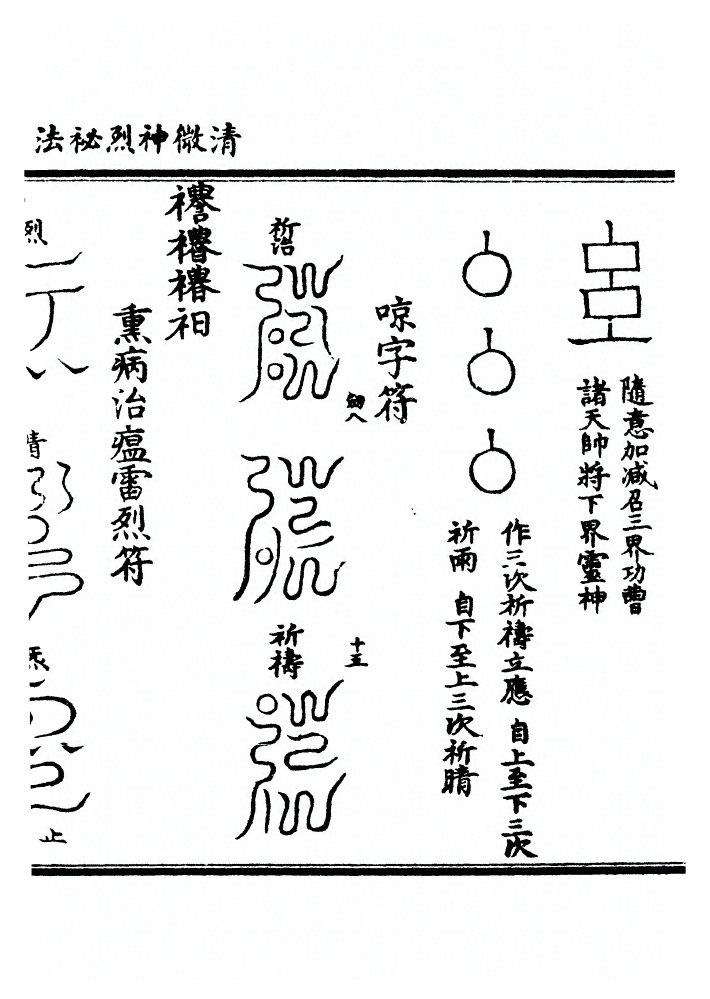 清微神烈祕法
隨意加減召三界功曹
諸天帥將下界靈神
作三次祈禱立應 自上至下三次
祈雨 自下至上三次祈晴
㖫字符
祈治
祈禱
十五
熏病治瘟雷烈符
烈
止